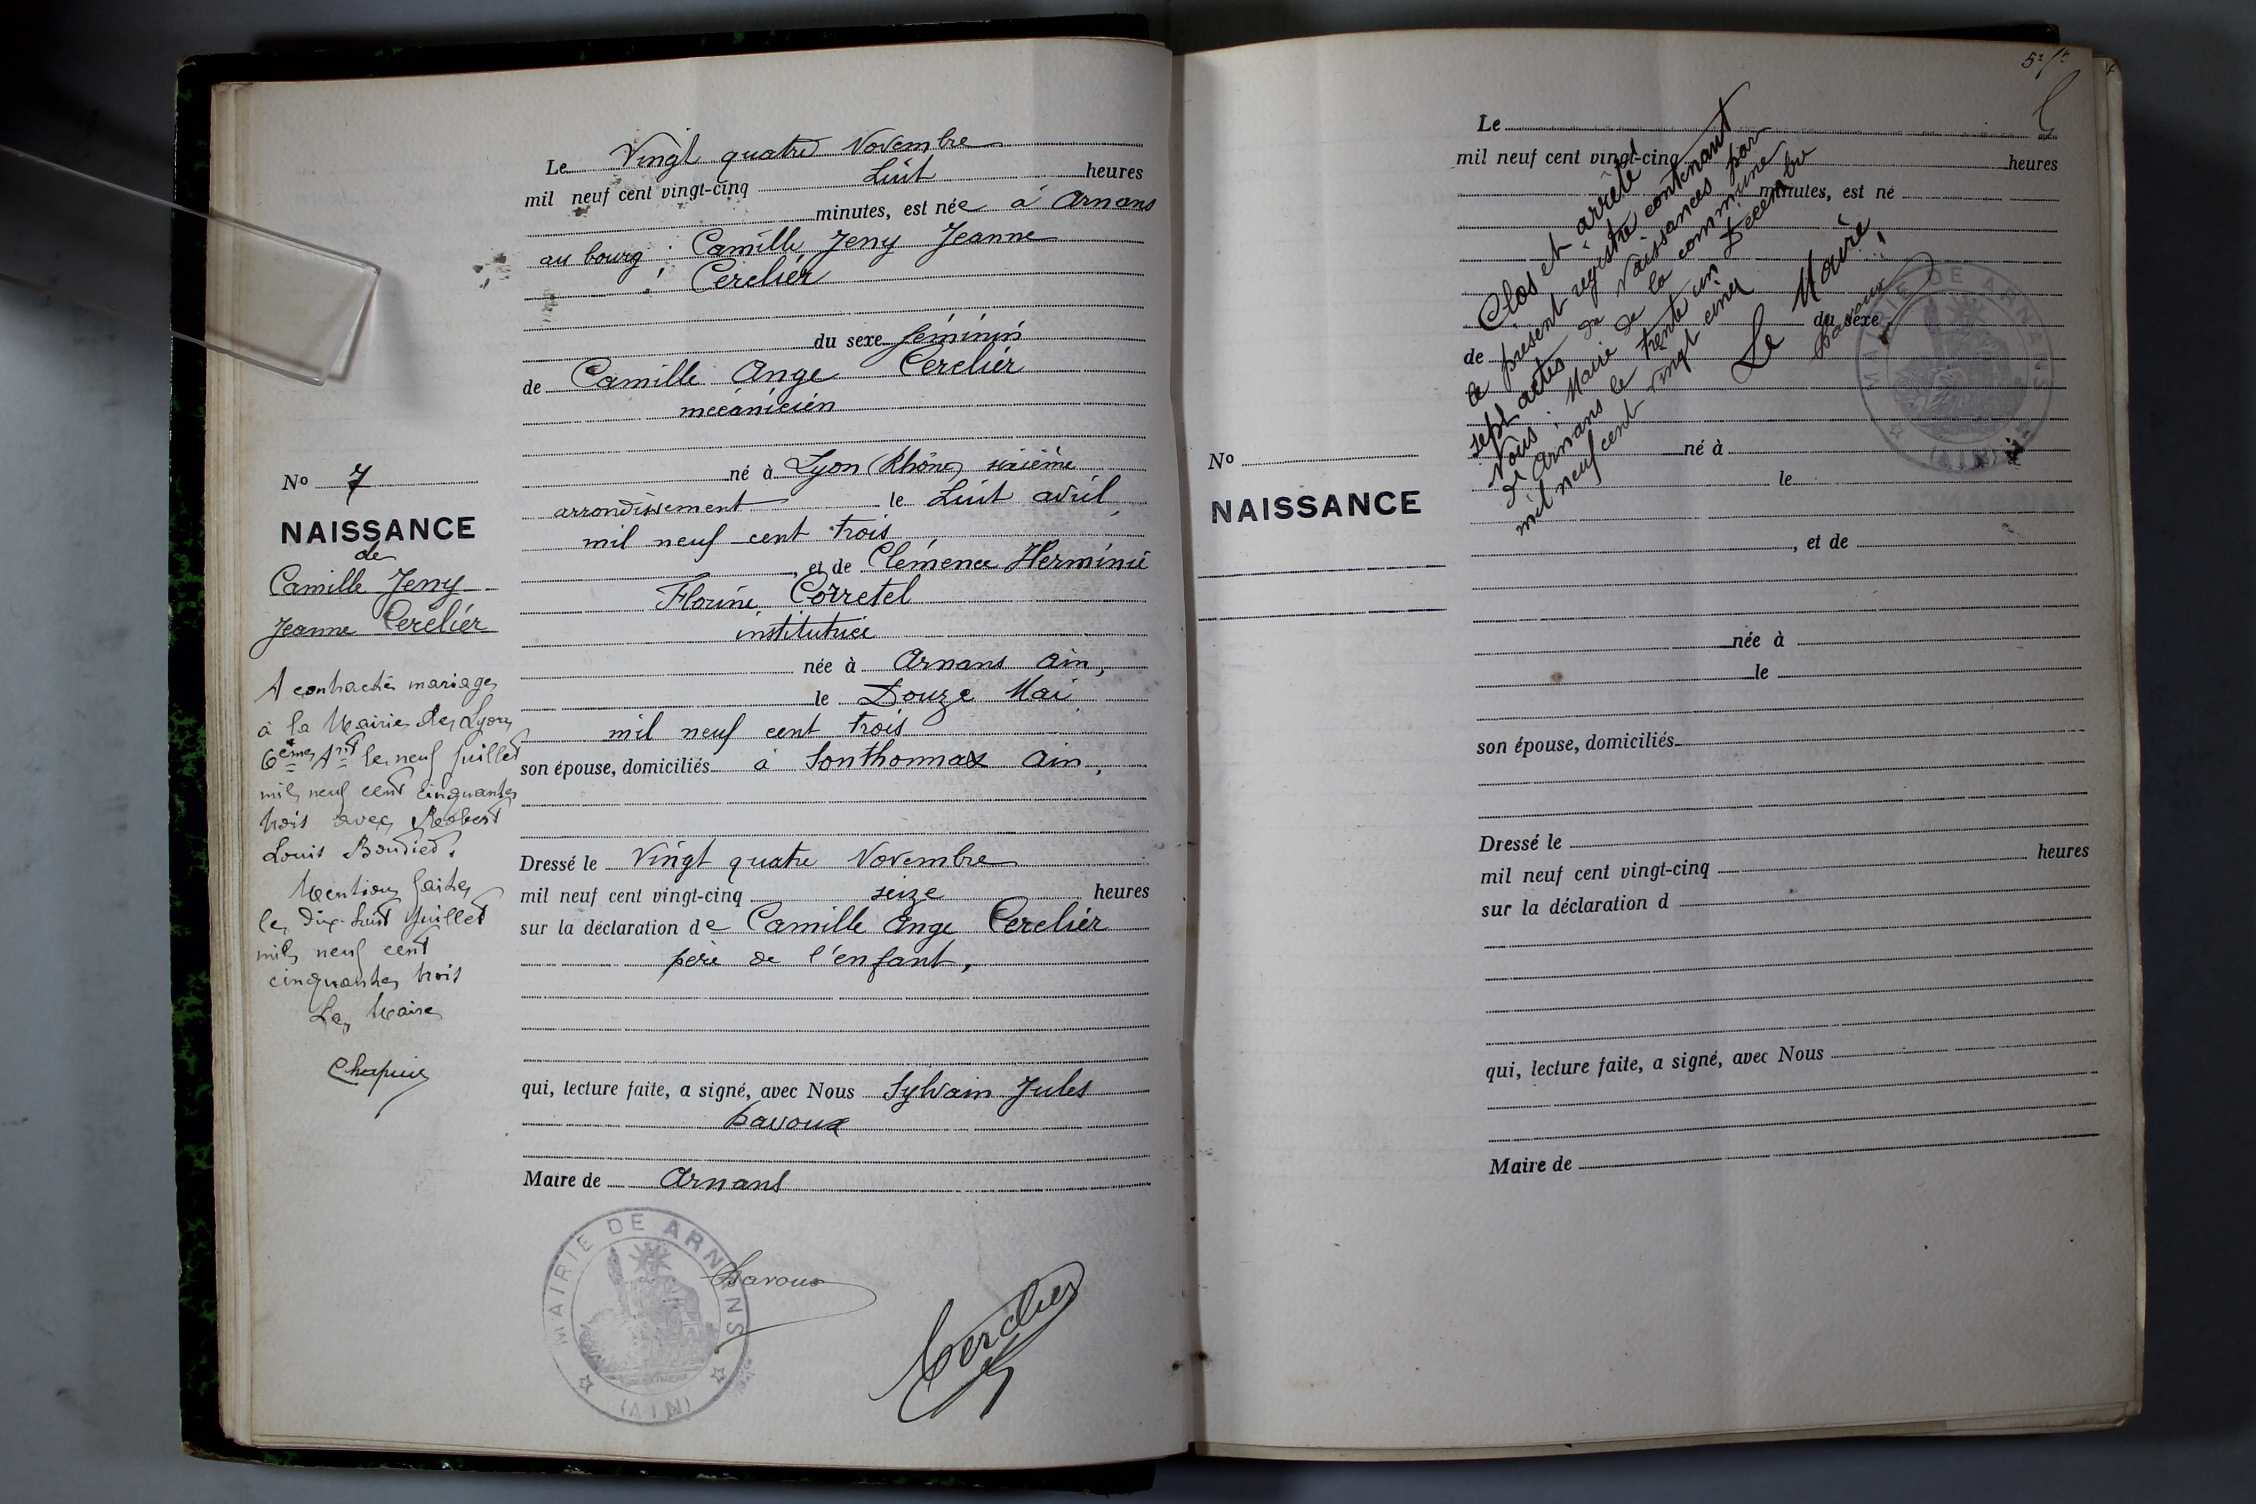 Le Vingt quatre Novembre
mil neuf cent vingt-cinq huit heures
minutes, est née à Arnans
au bourg : Camille Jeny Jeanne
Cerclier
du sexe féminin
de Camille Ange Cerclier
mécanicien
né à Lyon (Rhône) sixième
arrondissement le huit avril
mil neuf cent trois
, et de Clémence Herminie
Florine Corretel
institutrice
née à Arnans Ain,
le Douze Mai
mil neuf cent trois
son épouse, domiciliés à Sonthonnax Ain,
Dressé le Vingt quatre Novembre
mil neuf cent vingt-cinq seize heures
sur la déclaration de Camille Ange Cerclier
père de l'enfant,
qui, lecture faite, a signé, avec Nous Sylvain Jules
Savoux
Maire de Arnans
MAIRIE DE ARNANS
(AIN)
Cerclier
No 7
NAISSANCE
de
Camille Jeny
Jeanne Cerclier
A contracté mariage
à la Mairie de Lyon
6ème Arrt le neuf juillet
mil neuf cent cinquante
trois avec Robert
Louis
Mention faite
le dix-huit Juillet
mil neuf cent
cinquante trois
Le Maire
Chapuis
Le
mil neuf cent vingt-cinq heures
minutes, est né
du sexe
de
né à
le
, et de
née à
le
son épouse, domiciliés
Dressé le
mil neuf cent vingt-cinq heures
sur la déclaration d
qui, lecture faite, a signé, avec Nous
Maire de
No
NAISSANCE
Clos et arrêté
le présent registre contenant
sept actes de Naissances par
Nous, Maire de la commune
de Arnans le trente un Décembre
mil neuf cent vingt cinq
Le Maire,
MAIRIE DE ARNANS
(AIN)